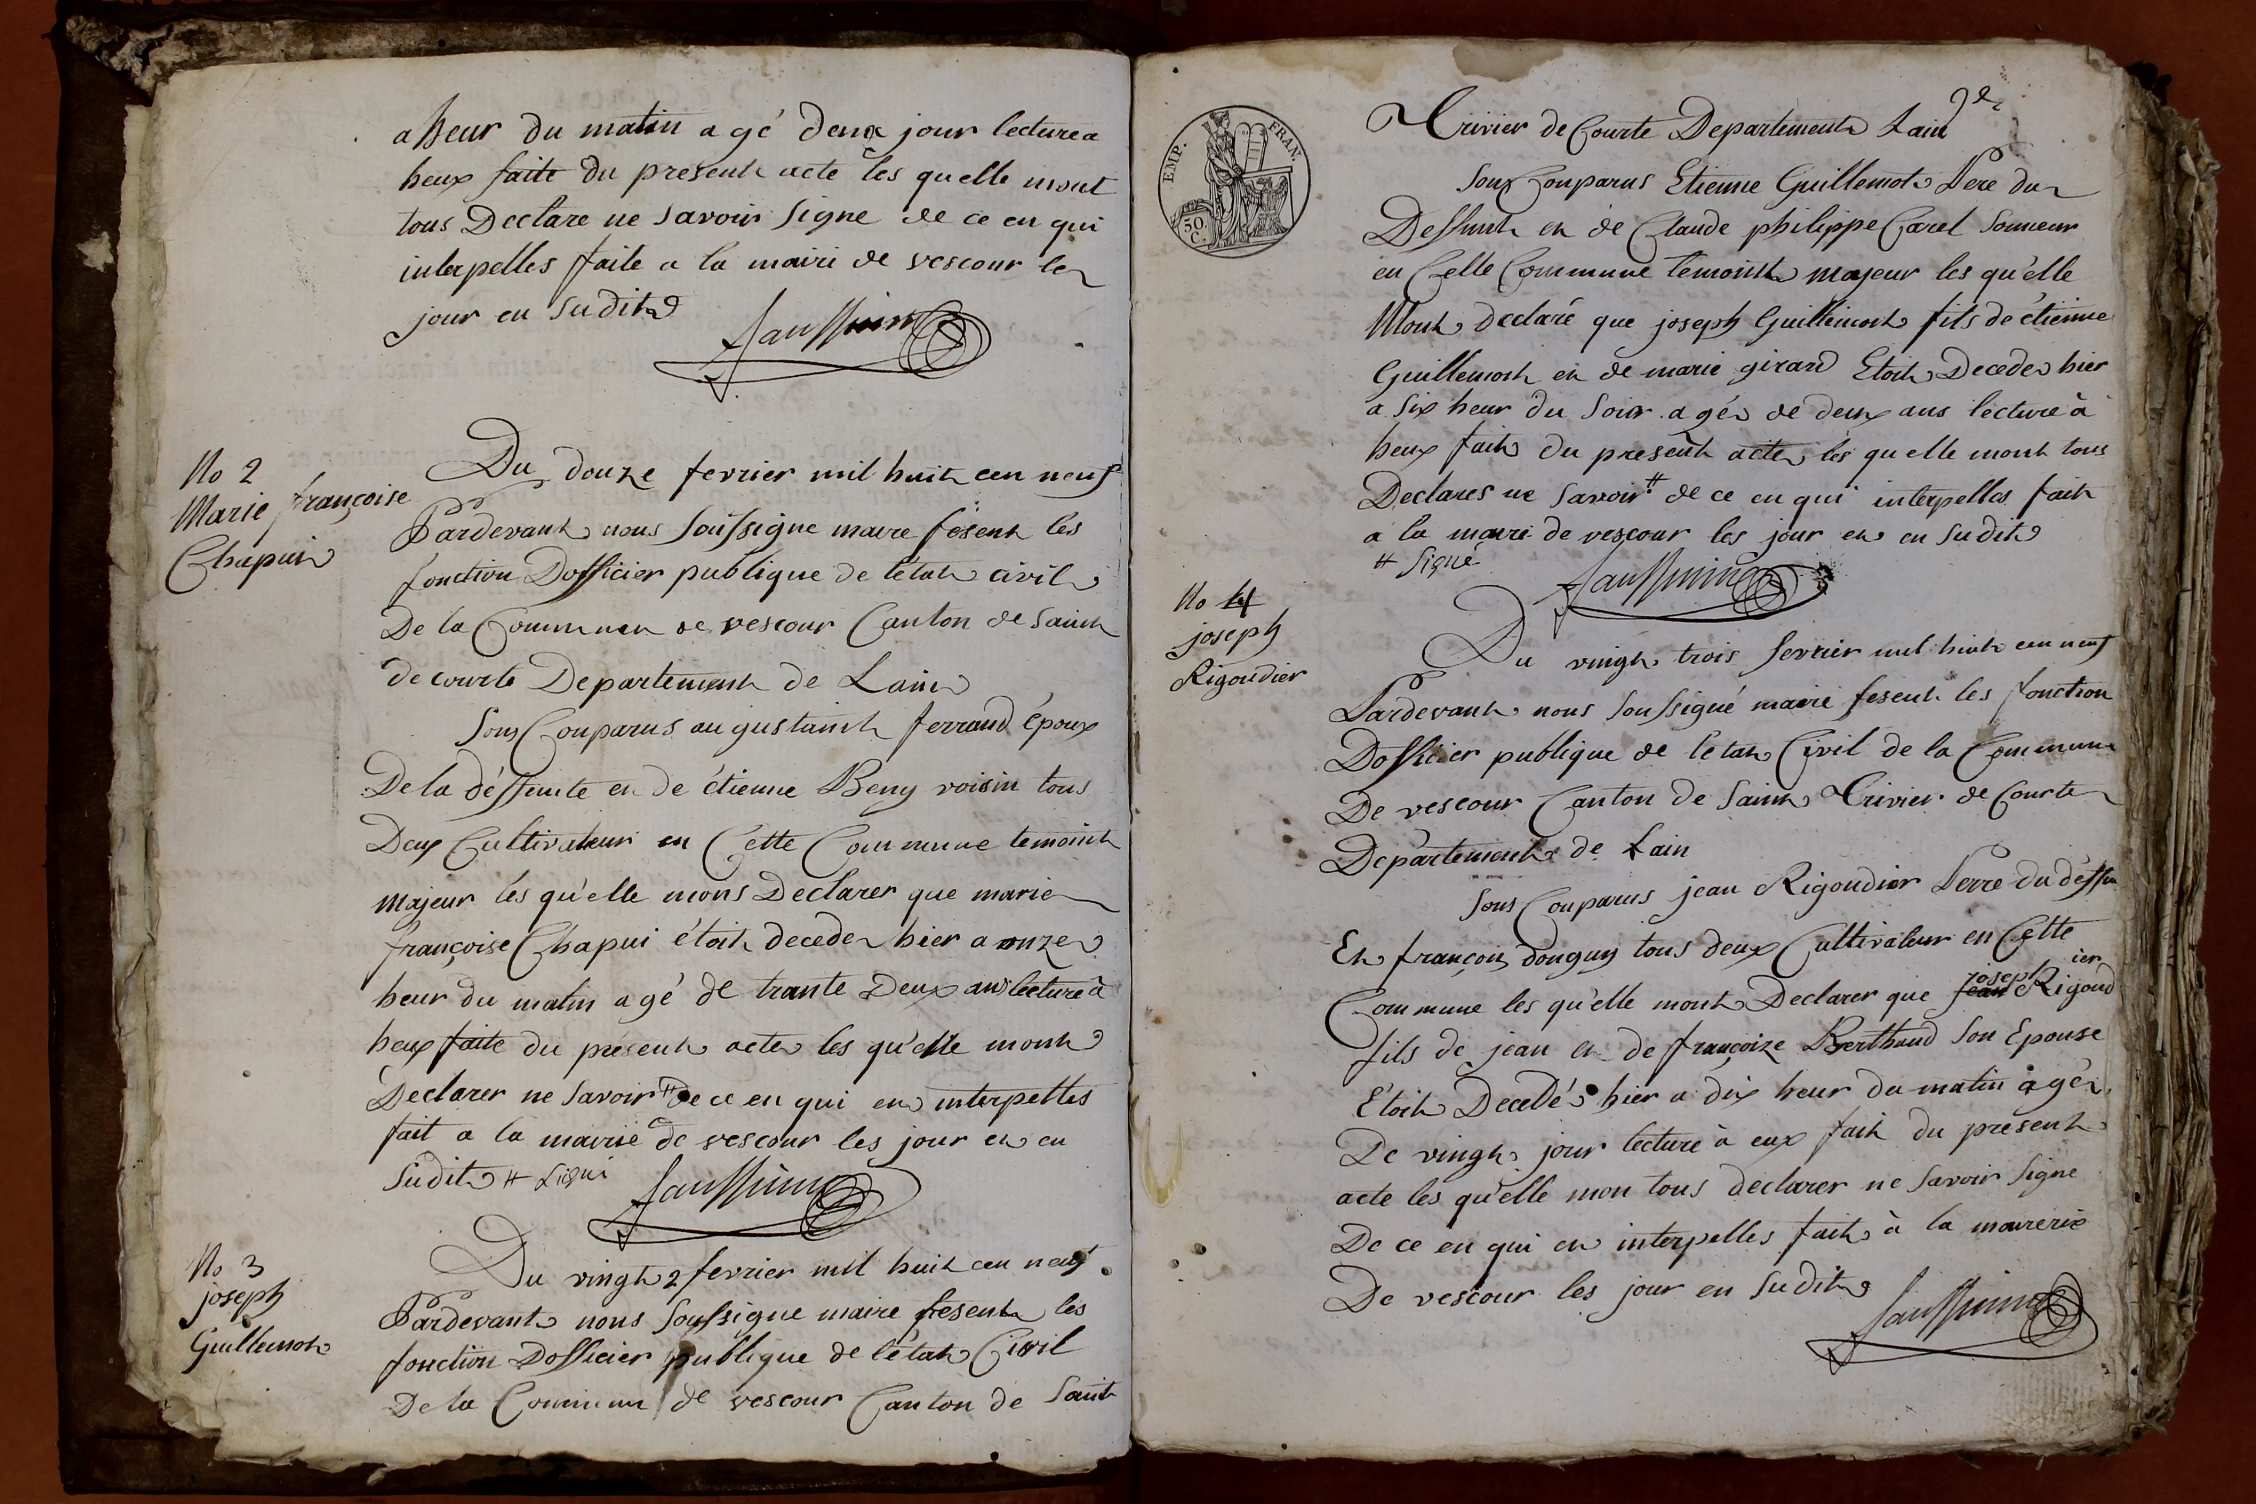 a heur du matin agé deux jour lecture a
heux faite du present acte les quelle mont
tous Declare ne savoir signe de ce en qui
interpelles faite a la mairi de vescour le
jour en sudit
No 2
Marie françoise
Chapui
Du douze fevrier mil huit cen neuf
Pardevant nous soussigne maire fesent les
fonction Dofficier publique de letat civil
De la Commun de vescour Canton de saint
de courte Departement de Lain
Sons Conparus augustaint ferrand époux
De la déffunte en de étienne Beny voisin tous
Deux Cultivateur en Cette Commune temoint
majeur les qu'elle mons Declarer que marie
françoise Chapui étoit deceder hier a onze
heur du matin agé de trante Deux ans lecture à
heux faite du present acte les qu'elle mont
Declarer ne savoir # de ce en qui en interpelles
fait a la mairie de vescour les jour en en
sudit # signé
No 3
joseph
Guillemot
Du vingt 2 fevrier mil huit cen neuf
Pardevant nous soussigne maire fesent les
fonction Dofficier publique de létat Civil
De la Commun de vescour Canton de saint
EMP. FRAN.
50. C.
Trivier de Courte Departement Lain
Sons Conparus Etienne Guillemot Pere du
Deffunt en de Claude philippe Carel sonneur
en Cette Commune temoint majeur les qu'elle
Mont declaré que joseph Guillemot fils de étienne
Guillemot en de marie girard Etoit Deceder hier
a six heur du soir agé de deux ans lecture à
heux fait du present acte les quelle mont tous
Declares ne savoir # de ce en qui interpelles fait
a la mairi de vescour les jour en en sudit
# signé
No 4
joseph
Rigoudier
Du vingt trois fevrier mil huit cen neuf
Pardevant nous soussigné mairé fesent les fonction
Dofficier publique de letat Civil de la Commune
De vescour Canton de saint Trivier de Courte
Département de Lain
Sons Conparus jean Rigoudier Perre du déffun
En françois donguy tous deux Cultivateur en Cette
Commune les qu'elle mont Declarer que joseph Rigoudier
fils de jean en de françoize Berthaud son Epouse
Etoit Decedé hier a dix heur du matin agé
De vingt jour lecture à eux fait du present
acte les qu'elle mon tous declarer ne savoir signe
De ce en qui en interpelles fait à la mairerie
De vescour les jour en sudit